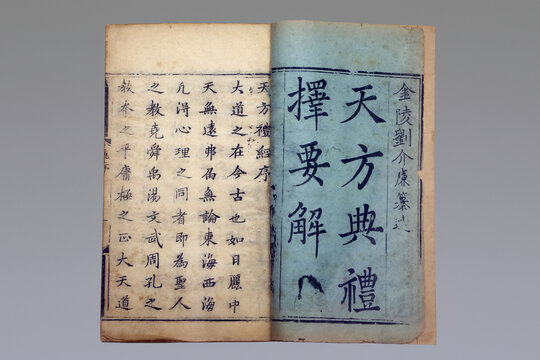 金陵劉介廉纂述
天方典禮
擇要解
天方禮經序
大道之在今古也如日麗中
天無遠弗屆無論東海西海
凡得心理之同者即為聖人
之教堯舜禹湯文武周孔之
教本之平庸極之正大天道